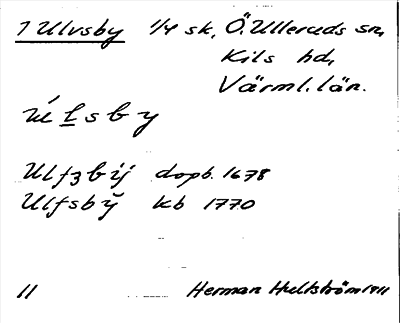 1 Ulvsby 1/4 sk, Ö. Ulleruds sn,
Kils hd,
Värml. län.
Ulfzbÿ dopb. 1678
Ulfsbÿ kb 1770
11 Herman Hultström 1911